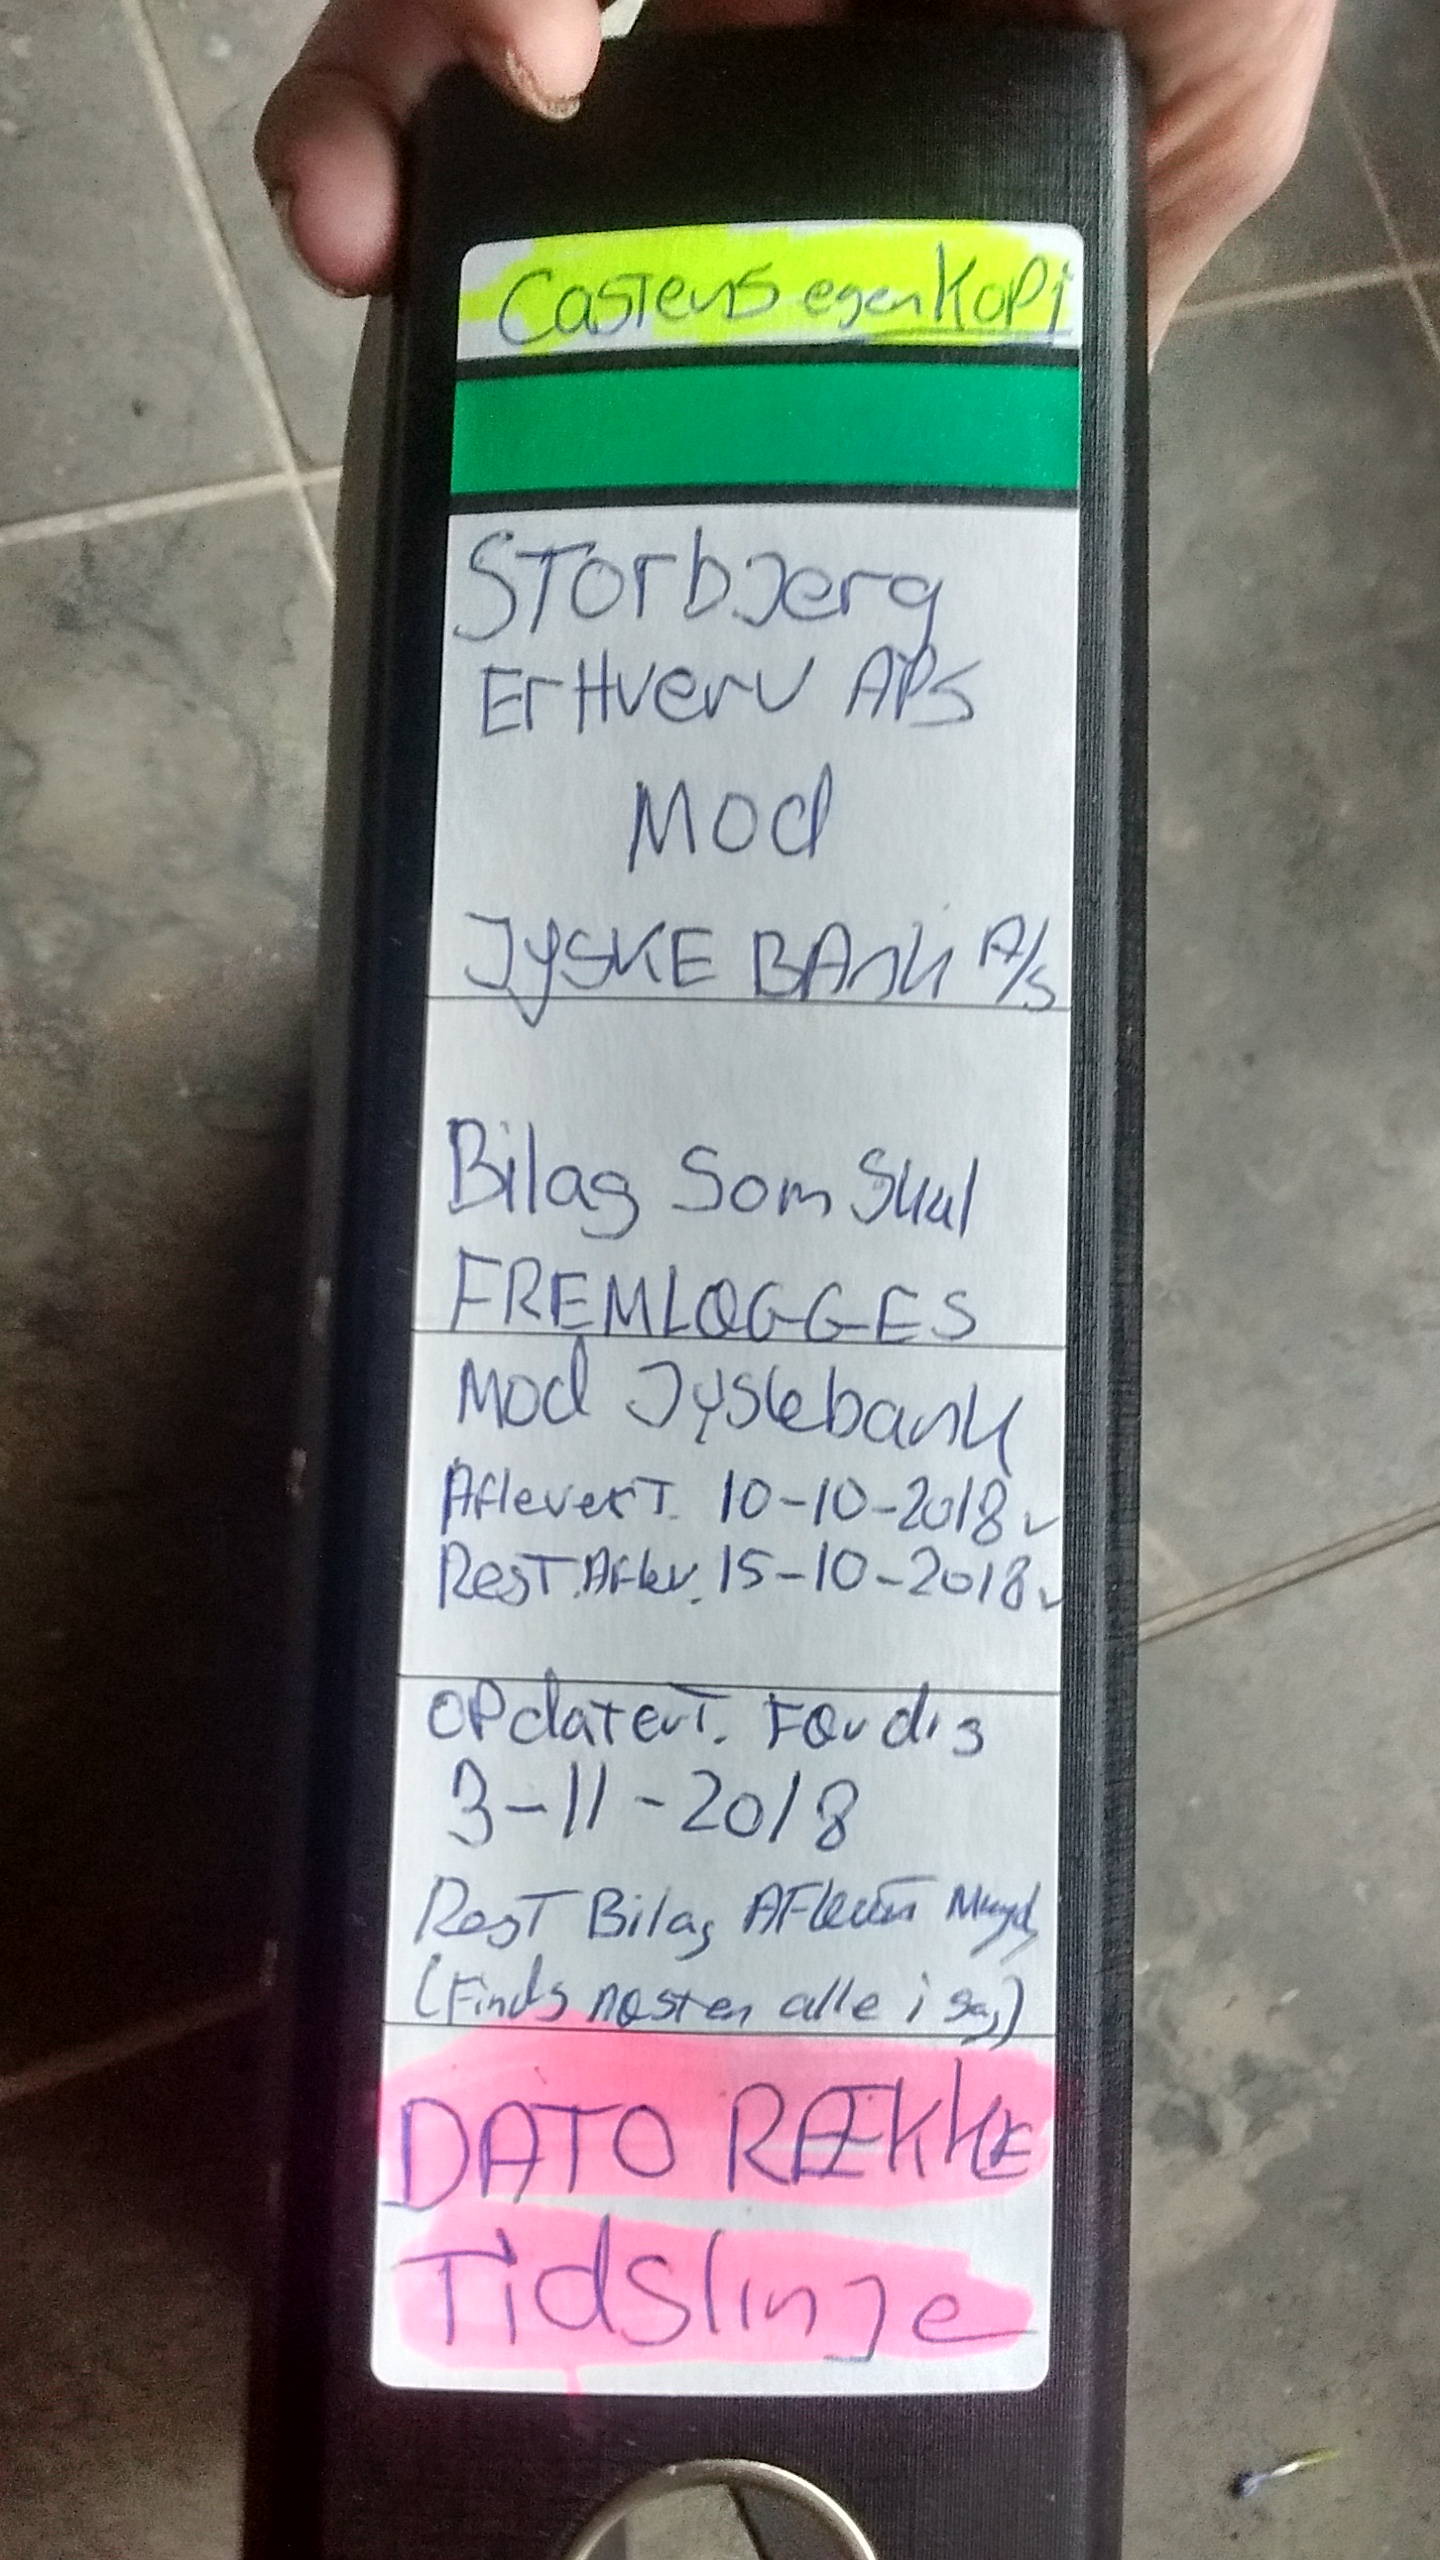 Castens egen Kopi
Storbjerg
ErHverv APS
Mod
JYSKE BAnk A/S
Bilag Som Skal
FREMLÆGGES
Mod Jyskebank
AflevერT. 10-10-2018
Rest. Aflev. 15-10-2018
OPdaterT. Færdig
3-11-2018
ResT Bilag AFlevert
(Finds næsten alle i sag)
DATO RÆKKE
Tidslinje